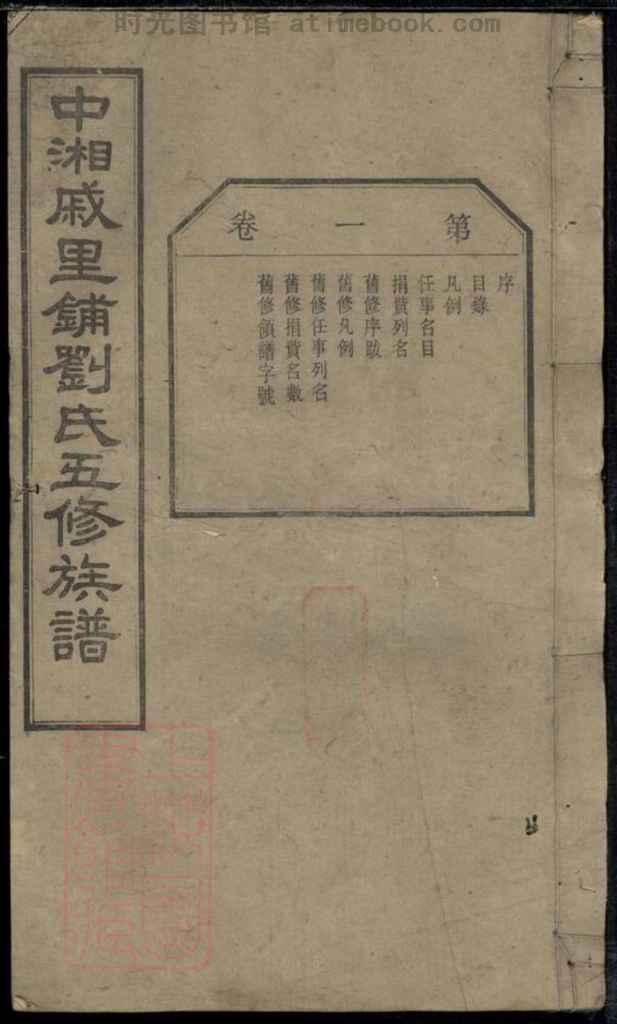 时光图书馆 atimebook.com
中湘戚里鋪劉氏五修族譜
第一卷
序
目錄
凡例
任事名目
捐貲列名
舊修序跋
舊修凡例
舊修任事列名
舊修捐貲名數
舊修領譜字號